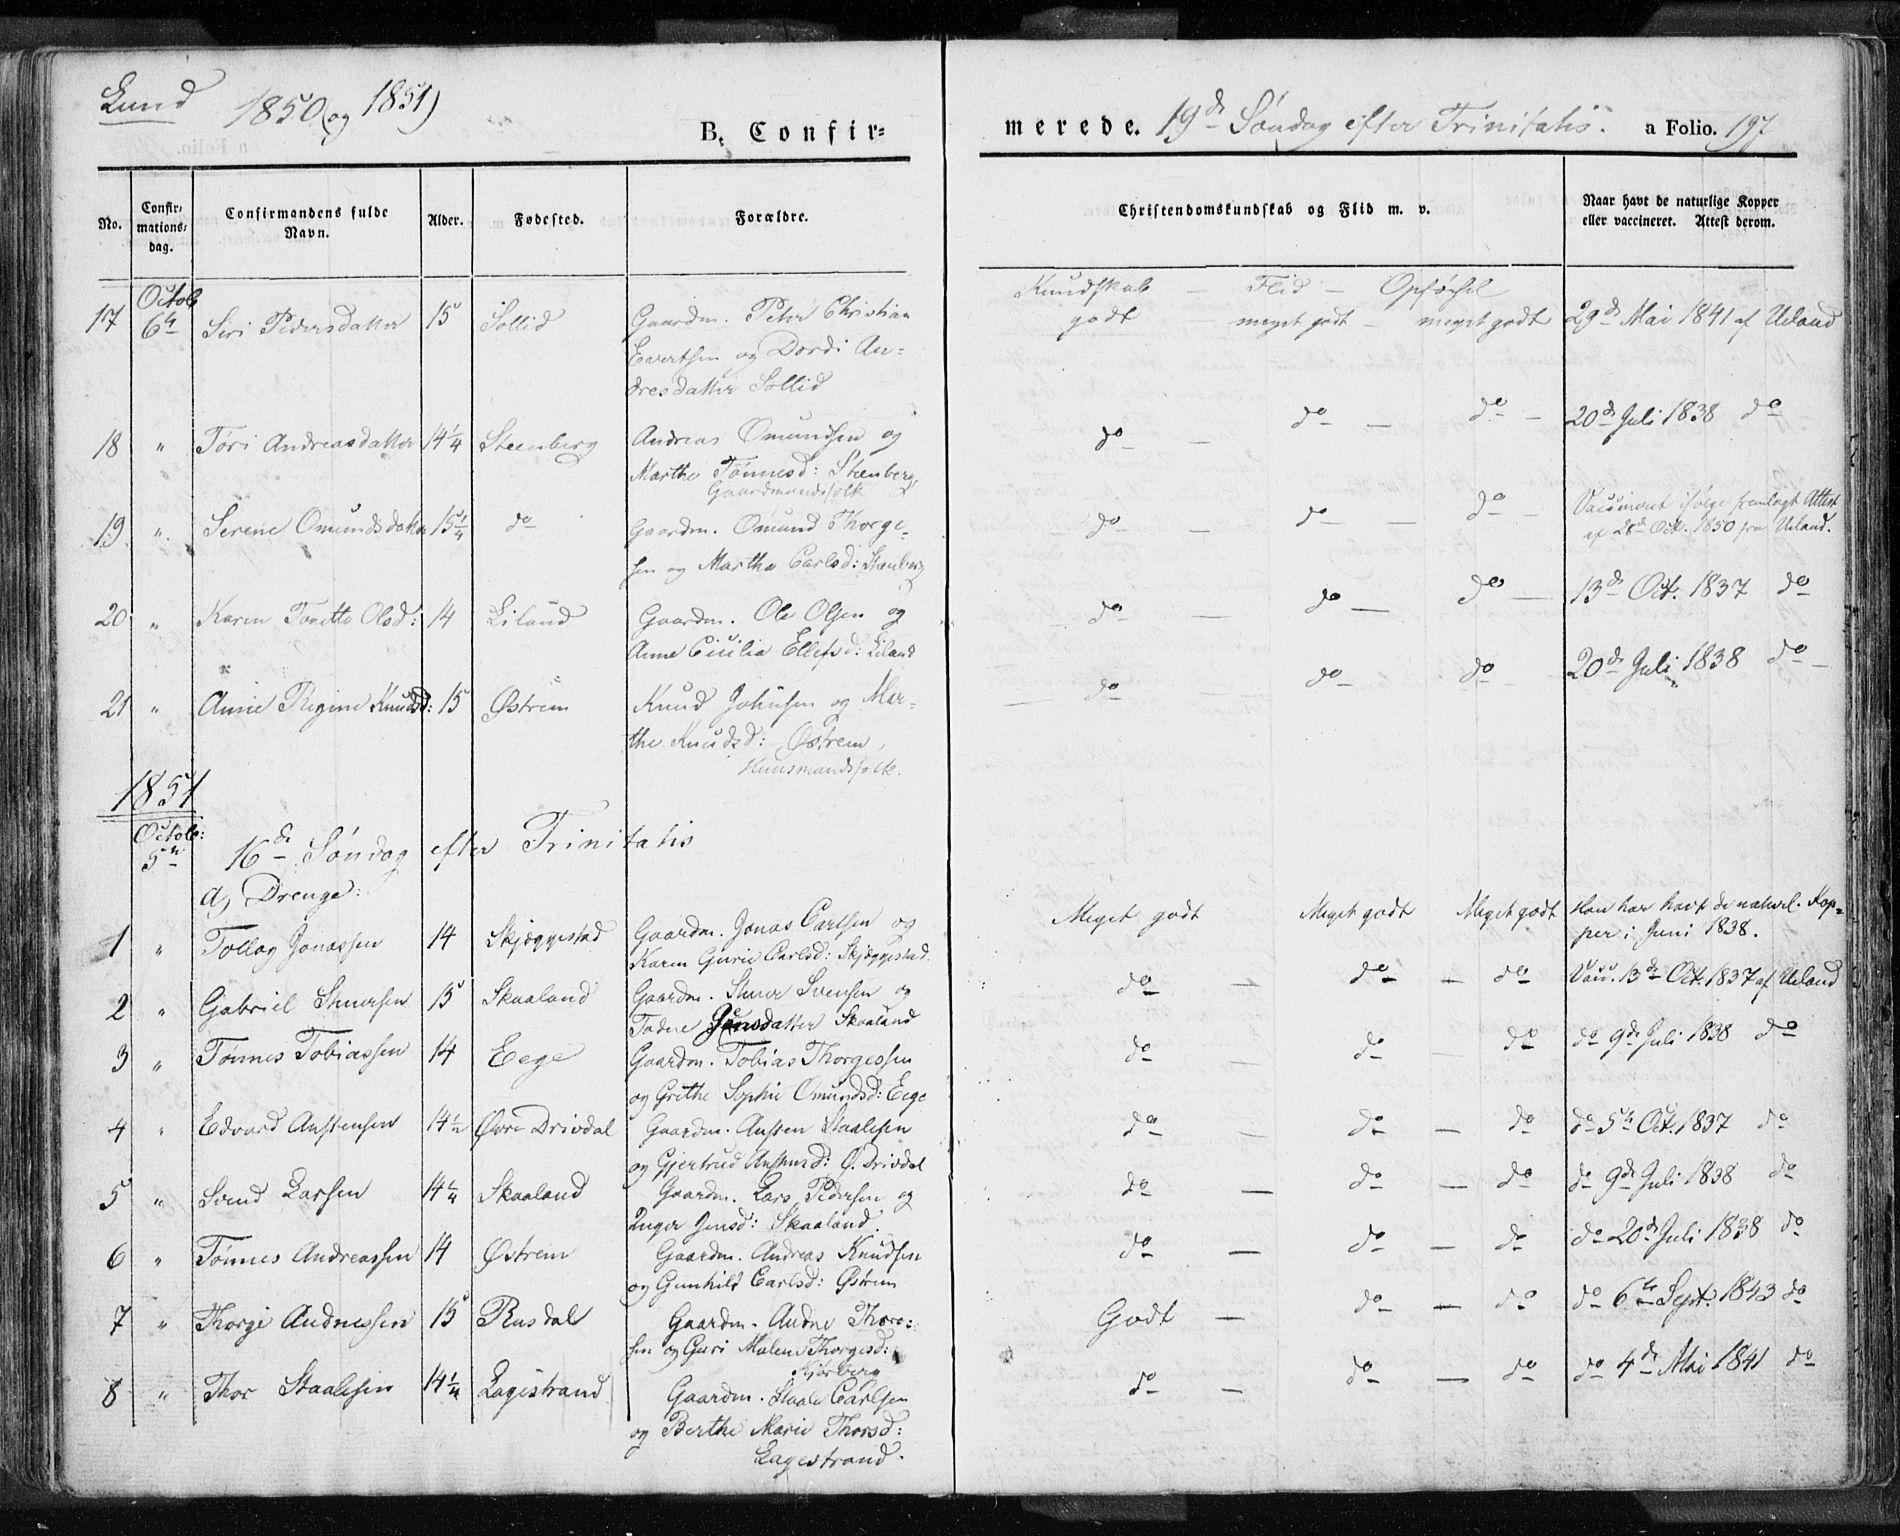 Lund 1850 (og 1851)
B. Confir=
merede. 19de Søndag efter Trinitatis. a Folio. 197
No. Confir-mations-dag. Confirmandens fulde Navn. Alder. Fødested. Forældre. Christendomskundskab og Flid m. v. Naar havt de naturlige Kopper eller vaccineret. Attest derom.
Kundskab – Flid – Opførsel
Octob
17 6te Siri Pedersdatter 15 Sollid Gaardm. Peter Christian godt meget godt – meget godt 29de Mai 1841 af Ueland
Evertsen og Dordi An=
dresdatter Sollid
18 " Tøri Andreasdatter 14 1/4 Steenberg Andreas Omundsen og do – do – do – 20de Juli 1838 do
Marthe Tønnesd: Steenberg,
Gaardmandsfolk
19 " Serene Omundsdatter 15 1/4 do Gaardm. Omund Thorge- do – do – do – Vaccineret ifølge fremlagt Attest
sen og Martha Carlsd: Steenberg af 28de Oct. 1850 fra Ueland.
20 " Karen Tonette Olsd: 14 Eiland Gaardm. Ole Olsen og do – do – do – 13de Oct. 1837 do
Anne Cicilia Ellefsd: Eiland
21 " Anne Regine Knudsd: 15 Østrem Knud Johnsen og Mar- do – do – do 20de Juli 1838 do –
the Knudsd: Østrem,
Huusmandsfolk.
1851
Octob:
5te 16de Søndag efter Trinitatis
a, Drenge:
1 " Tollag Jonassen 14 Skjæggestad Gaardm. Jonas Carlsen og Meget godt Meget godt Meget godt Han har havt de naturl. Kop-
Karen Gurie Carlsd: Skjæggestad. per i Juni 1838.
2 " Gabriel Stuersen 15 Skaaland Gaardm. Stuer Svensen og do – do – do Vacc. 13de Oct. 1837 af Ueland
Tadne Jensdatter Skaaland
3 " Tønnes Tobiassen 14 Eege Gaardm. Tobias Thorgessen do – do – do do 9de Juli 1838 do
og Grethe Sophie Omundsd: Eege
4 " Edvard Anstensen 14 1/2 Øvre Drivdal Gaardm. Ansten Staalesen do – do – do do 5te Oct. 1837 do
og Gjertrud Anstensd: Ø. Drivdal
5 " Svend Larsen 14 1/4 Skaaland Gaardm. Lars Pedersen og do – do – do do 9de Juli 1838 do
Inger Jensd: Skaaland.
6 " Tønnes Andreassen 14 Østrem Gaardm. Andreas Knudsen do – do – do do 20de Juli 1838 do
og Gunhild Carlsd: Østrem
7 " Thorge Audnessen 15 Rusdal Gaardm. Audne Thore= Godt – do – do do 6te Sept. 1843 do
sen og Guri Malene Thorgesd:
Kjørberg
8 " Thor Staalesen 14 1/4 Eagestrand Gaardm. Staale Carlsen do – do – do do 4de Mai 1841 do
og Berthe Marie Thorsd:
Eagestrand.